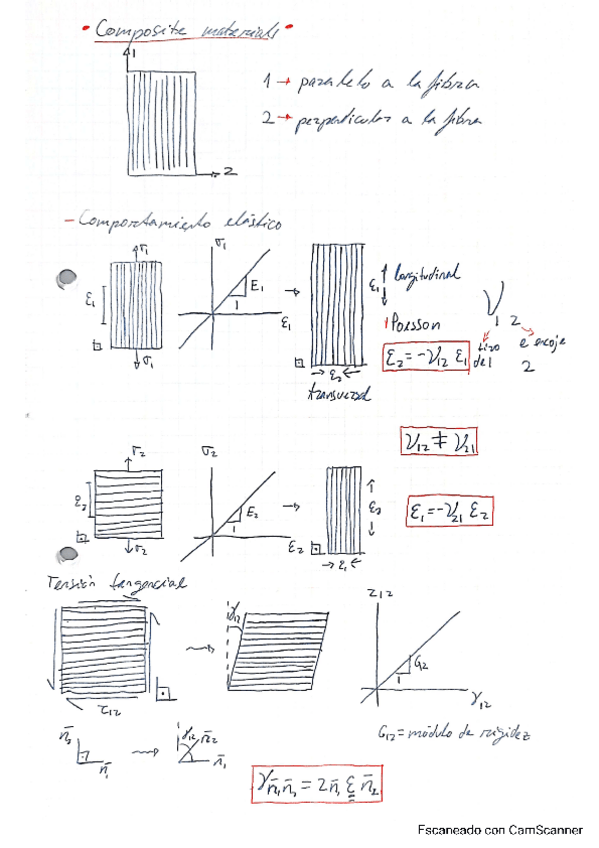 • Composite materials •
1
1 → paralelo a la fibra
2 → perpendicular a la fibra
2
- Comportamiento elástico
σ1
σ1
ε1
E1
1
ε1
σ1
ε1 longitudinal
Poisson
ε2 = -ν12 ε1
ν12
tiro de 1
e encoje 2
ε2
transversal
ν12 ≠ ν21
σ2
σ2
ε2
E2
1
ε2
σ2
ε2
ε1
ε1 = -ν21 ε2
Tensión tangencial
τ12
γ12
τ12
G12
1
γ12
G12 = módulo de rigidez
n̄2
n̄1
γ12
n̄2
n̄1
2n̄1 ε n̄2
Escaneado con CamScanner